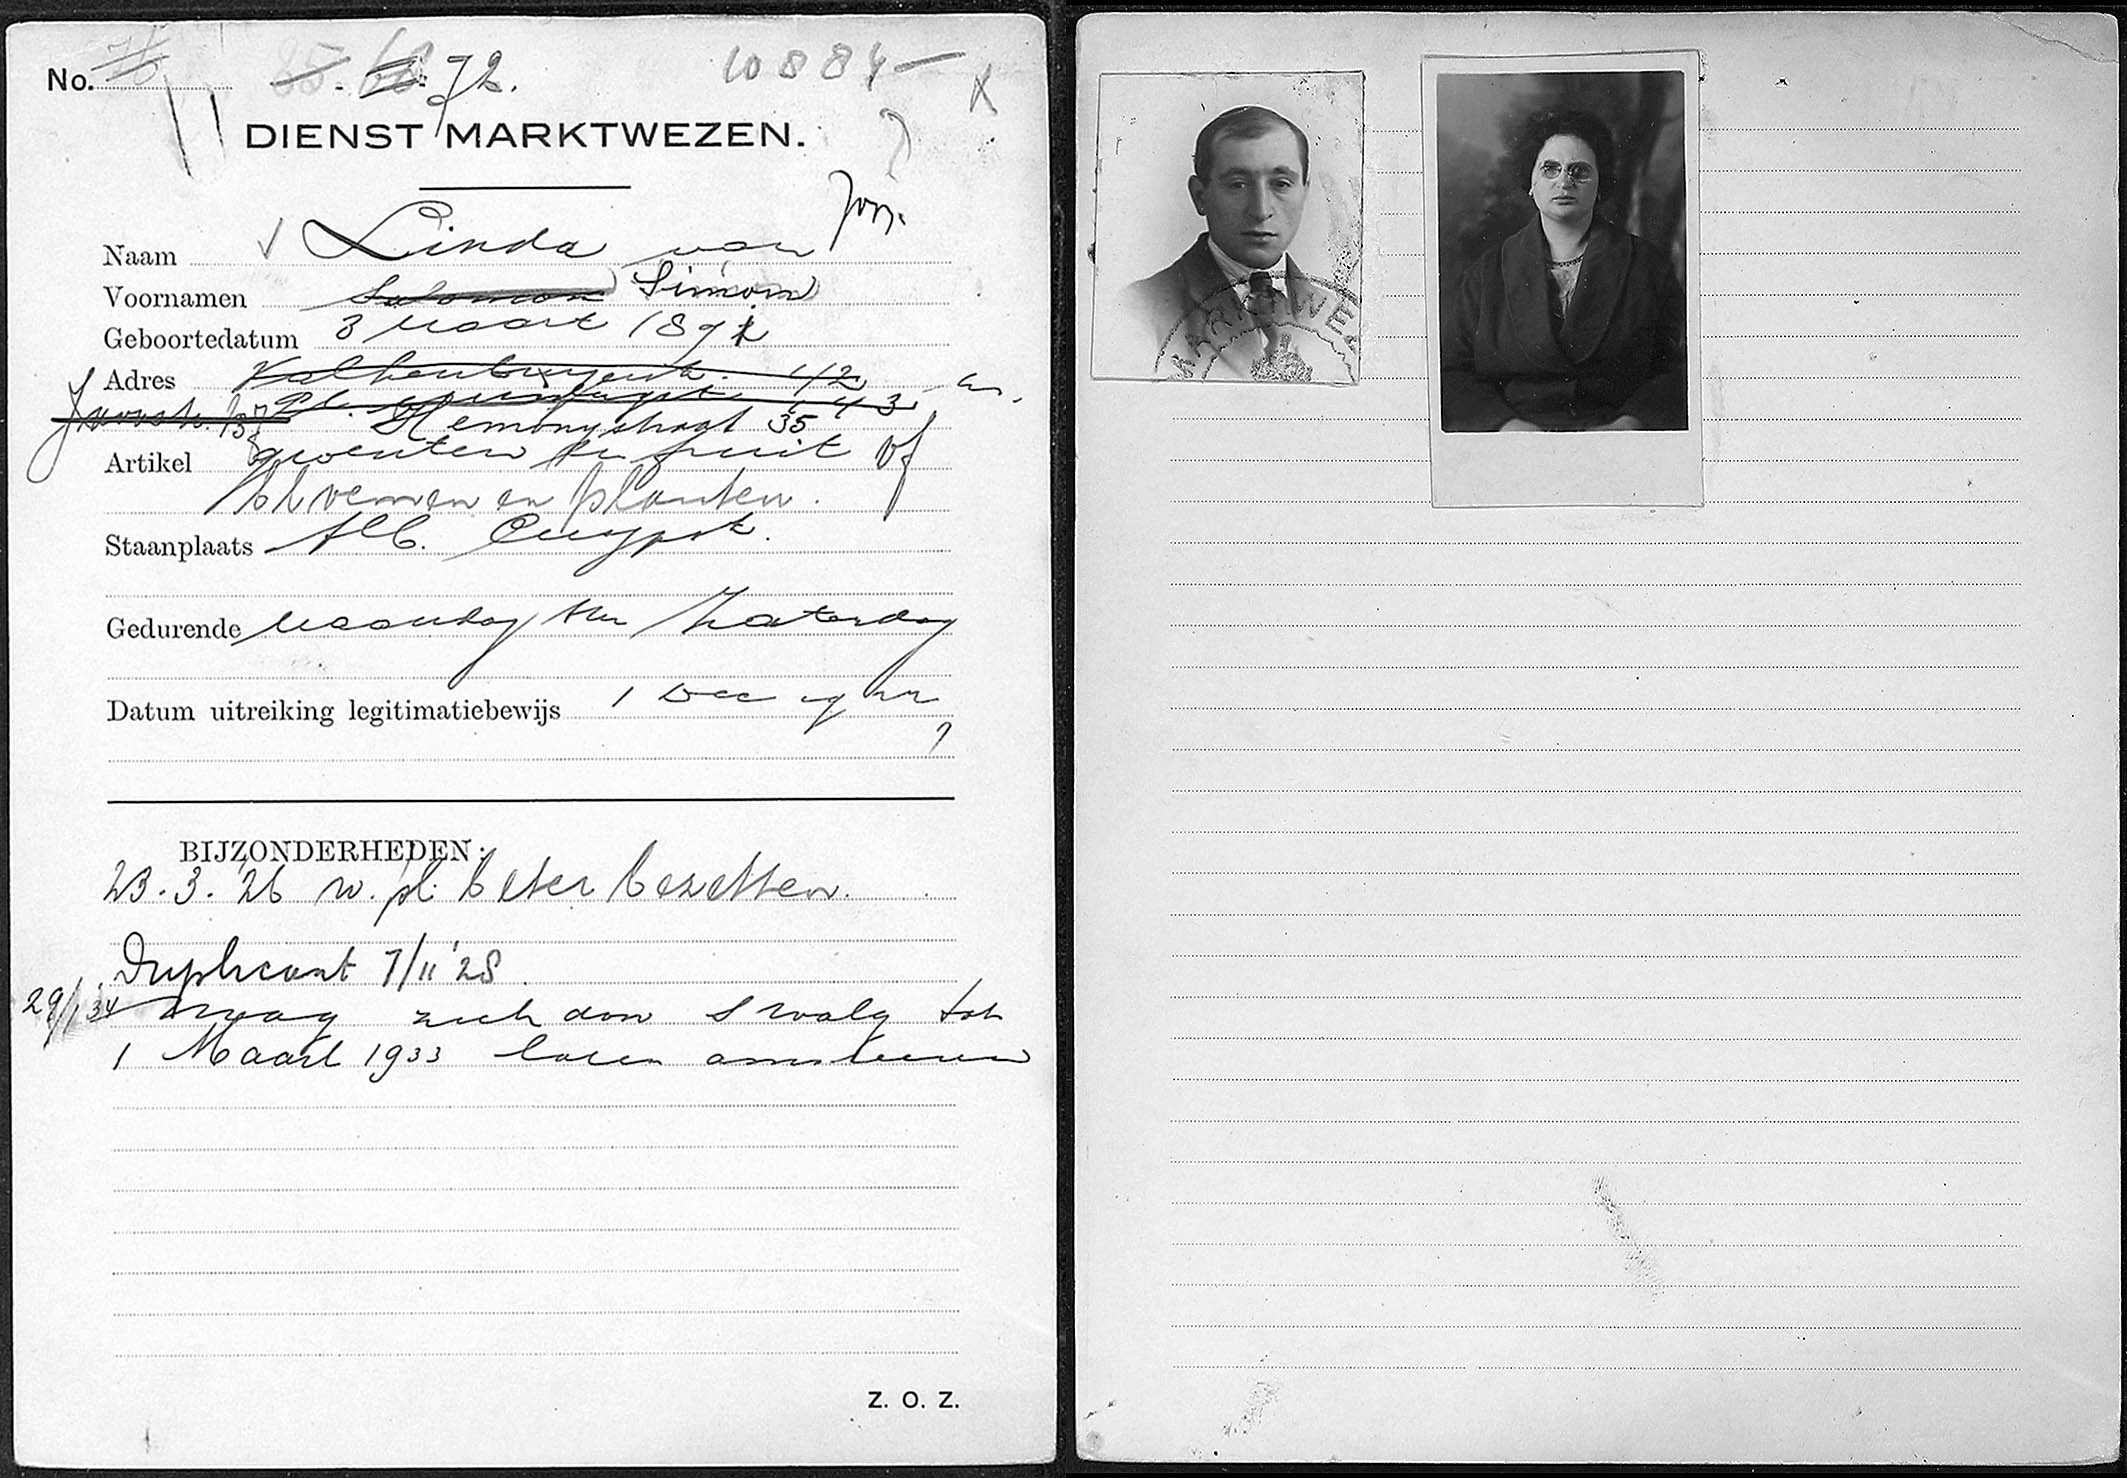 No. 72.
10884 —
DIENST MARKTWEZEN.
Naam Linda van
Voornamen Salomon Simon
Geboortedatum 3 Maart 189
Adres Valkenburgerstr. 42
143
137 Hemonystraat 35
Artikel groenten en fruit of
bloemen en planten.
Staanplaats Alb. Cuypstr.
Gedurende Maandag t/m Zaterdag
Datum uitreiking legitimatiebewijs 1 Dec
BIJZONDERHEDEN:
23.3.'26 w. pl. beter bezetten.
Duplicaat 7/11 '28.
29/1 '34 Mag zich don tot
1 Maart 1933 laten
Z. O. Z.
MARKTWEZE